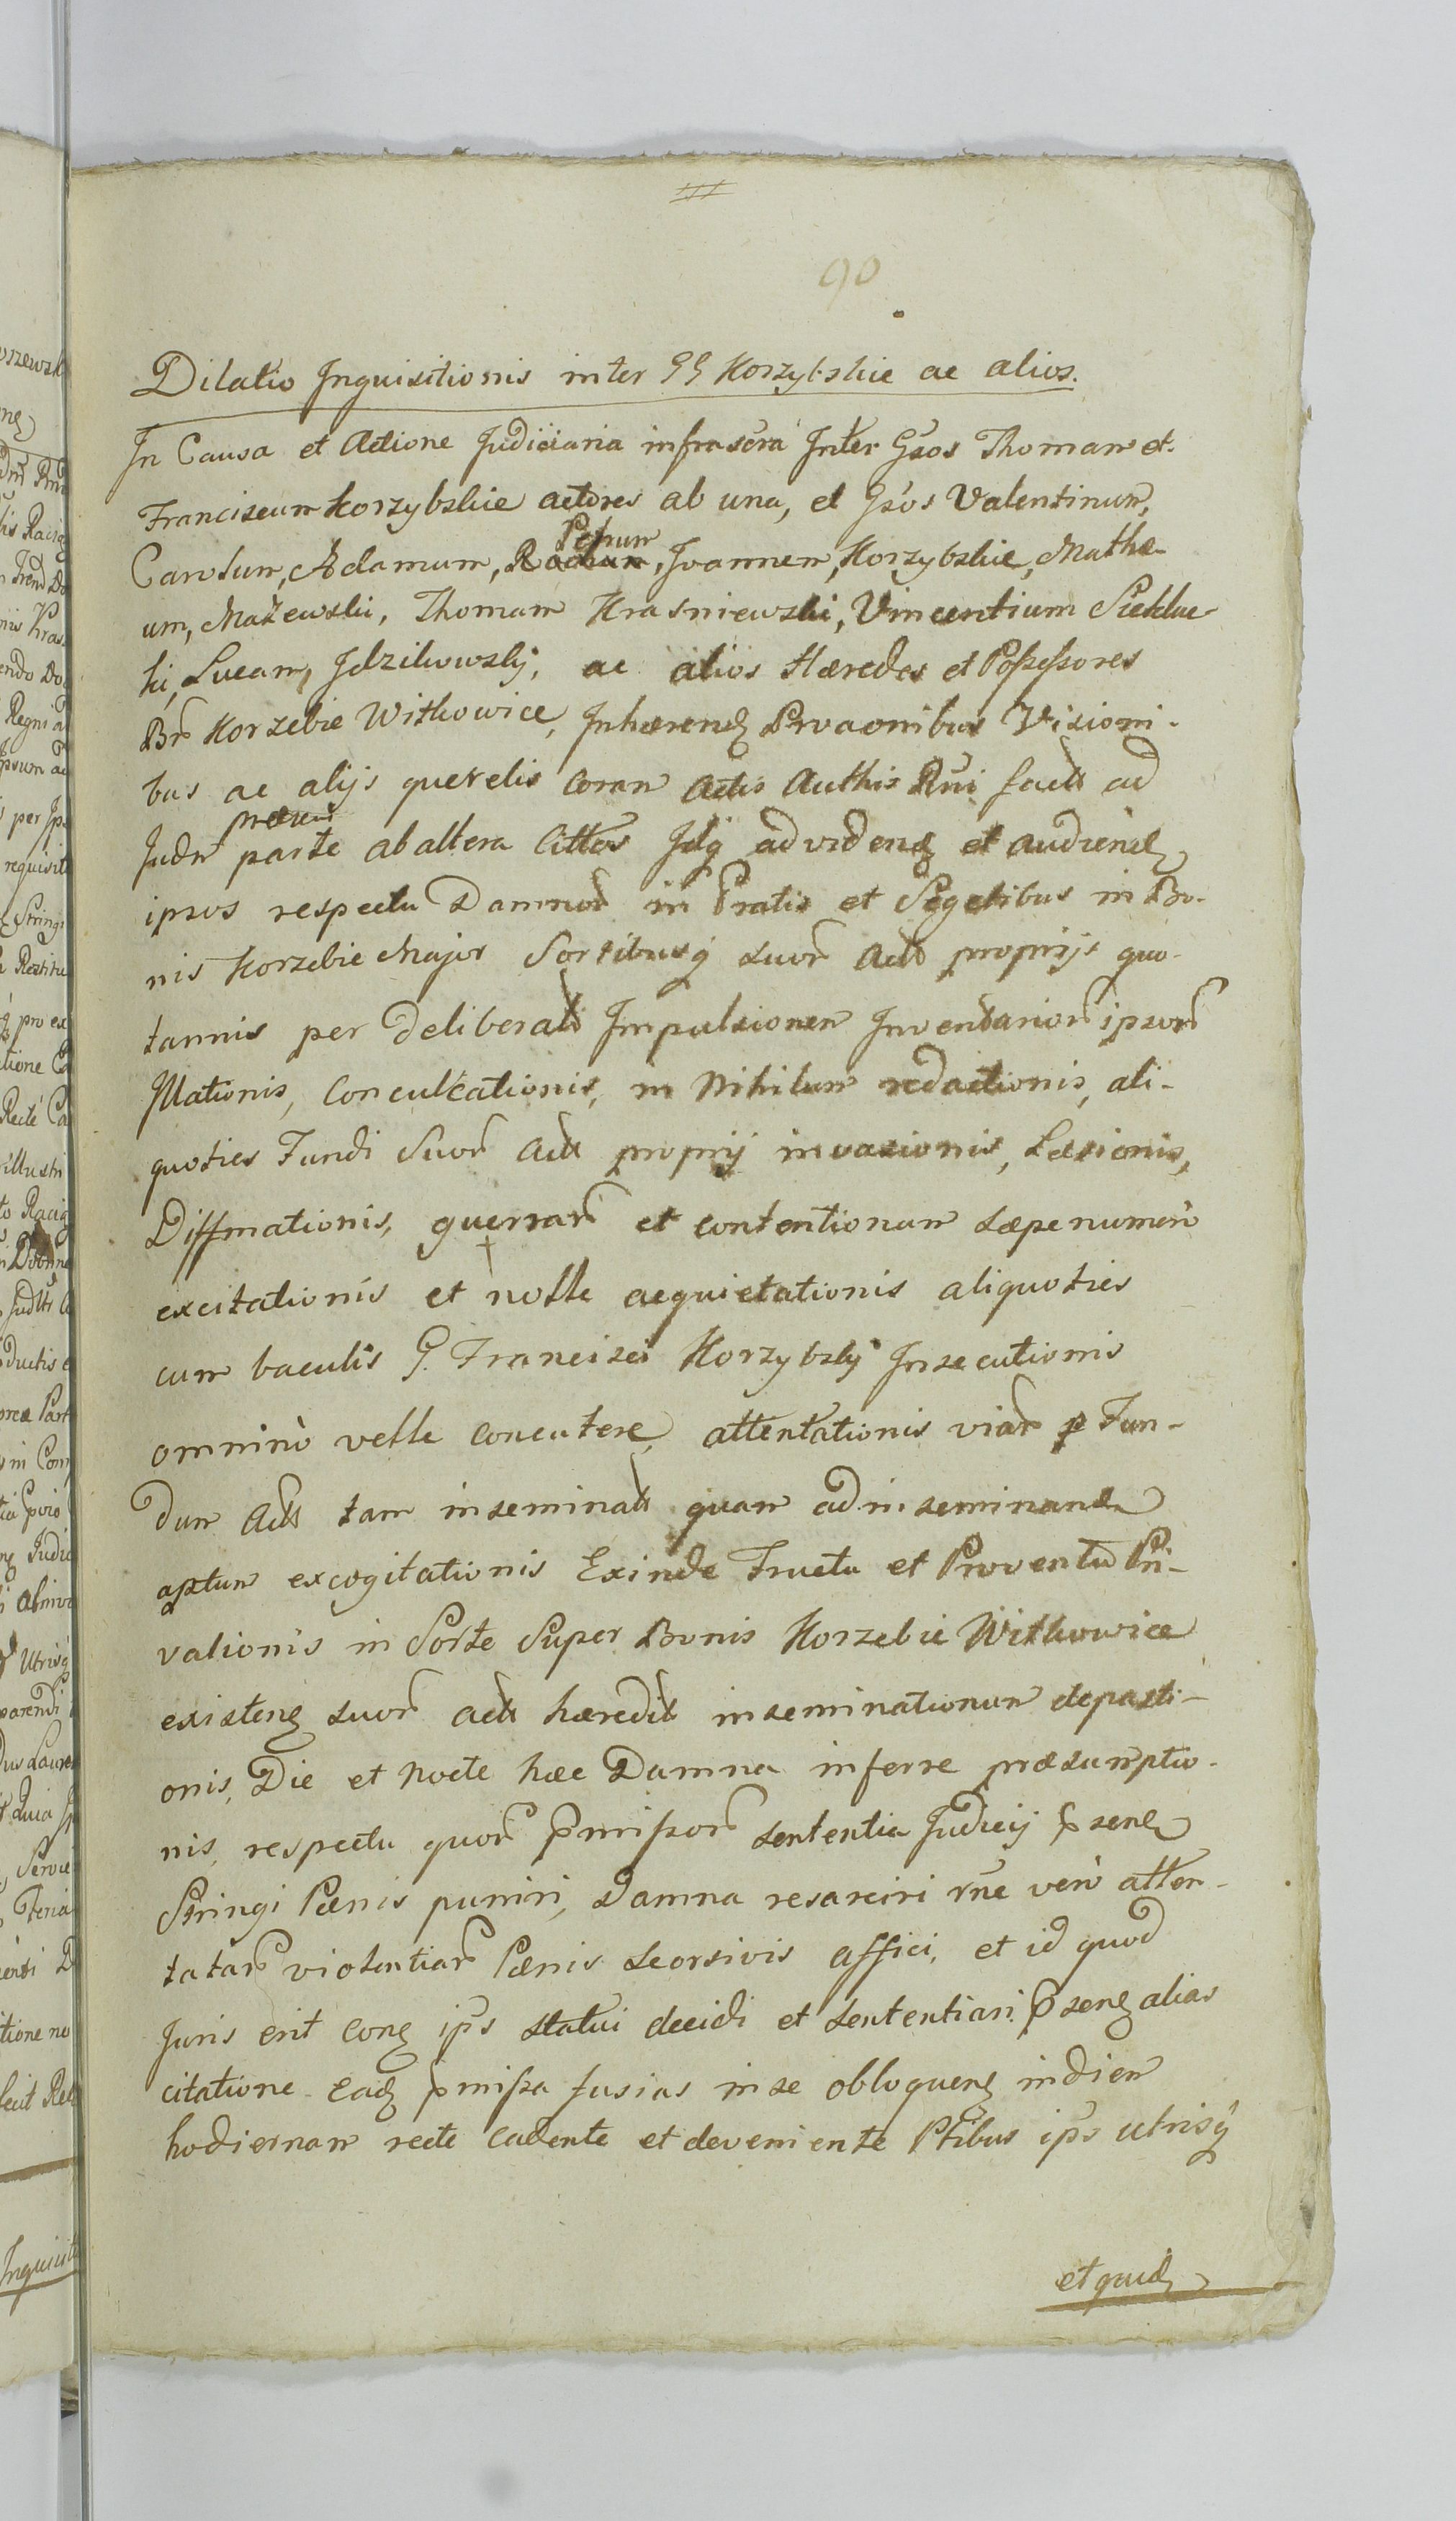 90
Dilatio Inquisitionis inter GG Korzybskie ac alios.
In Causa et Actione Judiciaria infrascra Inter Gsos Thomam et
Franciscum Korzybskie actores ab una, et Gsos Valentinum,
Carolum, Adamum, Petrum, Joannem, Korzybskie, Mathe-
um, Mażewski, Thomam Krasniewski, Vincentium Siekluc-
ki, Lucam, Idzikowsky, ac alios Hæredes et Possessores
Br Korzebie Witkowice, Inhærend Prvaonibus Visioni-
bus ac alijs querelis coram Actis Authis Rni fact ad
Judm præsens parte ab altera Cittos Idq ad vidend et audiend
ipsos respectu Damnor in Pratis et Segetibus in Bo-
nis Korzebie Major Sortibusq suor act proprijs quo-
tannis per deliberat Impulsionem Inventarior ipsor
Illationis, Conculcationis, in Nihilum redactionis, ali-
quoties Fundi Suor act proprij invasionis, Læsionis,
Diffmationis, guerrar et contentionum sæpenumero
excitationis et nolle acquietationis aliquoties
cum baculis G. Francisci Korzybsky Insecutionis
omnino velle concutere, attentationis viar p Fun-
dum act tam inseminat quam ad inseminand
aptum excogitationis Exinde Fructu et Proventu Pri-
vationis in Sorte Super Bonis Korzebie Witkowice
existend suor act hæredit inseminationum depasti-
onis, Die et Nocte hæc Damna inferre præsumptio-
nis, respectu quor pmissor sententia Judicij psend
Stringi Pænis puniri, Damna resarciri rne vero atten-
tatar violentiar Pænis seorsivis affici, et id quod
Juris erit cong ips statui decidi et sententiari psend alias
citatione Eadq pmissa fusius in se obloquend in diem
hodiernam recte cadente et deveniente Ptibus ips utrisq
et quid